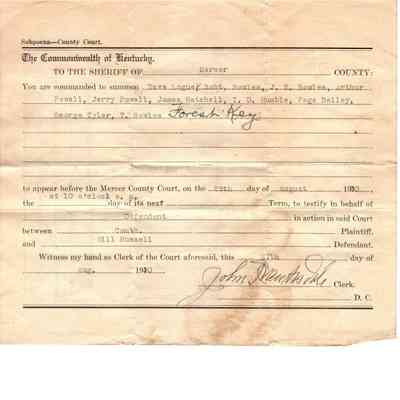 Subpoena—County Court.
The Commonwealth of Kentucky.
TO THE SHERIFF OF Mercer COUNTY:
You are commanded to summon Dave Logue, Robt. Bowles, J. E. Bowles, Arthur
Powell, Jerry Powell, James Hatchell, I. D. Humble, Page Bailey,
George Tyler, T. Bowles Forest Key
to appear before the Mercer County Court, on the day of August 1930,
at 10 o'clock a. m.
the day of its next Term, to testify in behalf of
Defendent in action in said Court
between Comth. Plaintiff,
and Will Russell Defendant.
Witness my hand as Clerk of the Court aforesaid, this 27th day of
Aug. 1930
John Clerk.
D. C.